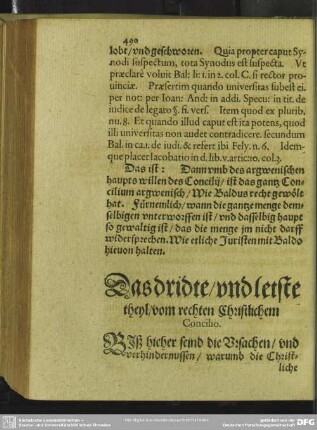 490
lobt/ vnd geschworen. Quia propter caput Sy-
nodi suspectum, tota Synodus est suspecta. Vt
præclarè voluit Bal: li: 1. in 2. col. C. si rector pro-
uinciæ. Præsertim quando vniuersitas subest ei.
per not: per Ioan: And: in addi. Specu: in tit. de
iudice de legato §. fi. vers. Item quod ex pluribus
nu. 8. Et quando illud caput est ita potens, quod
illi vniuersitas non audet contradicere. secundum
Bal. in ca. 1. de iudi. & refert ibi Fely. n. 6. Idem-
que placet Iacobatio in d. lib. v. artic. 10. col. 3.
Das ist: Dann vmb des argwenischen
haupts willen des Concilij/ ist das gantz Con-
cilium argwenisch/ Wie Baldus recht gewölt
hat. Fürnemlich/ wann die gantze menge dem-
selbigen vnterworffen ist/ vnd dasselbig haupt
so gewaltig ist/ das die menge jm nicht darff
widersprechen. Wie etliche Juristen mit Baldo
hieuon halten.
Das dridte/ vnd letste
theyl/ vom rechten Christlichem
Concilio.
Biß hieher seind die Vrsachen/ vnd
verhindernussen/ warumb die Christ-
liche